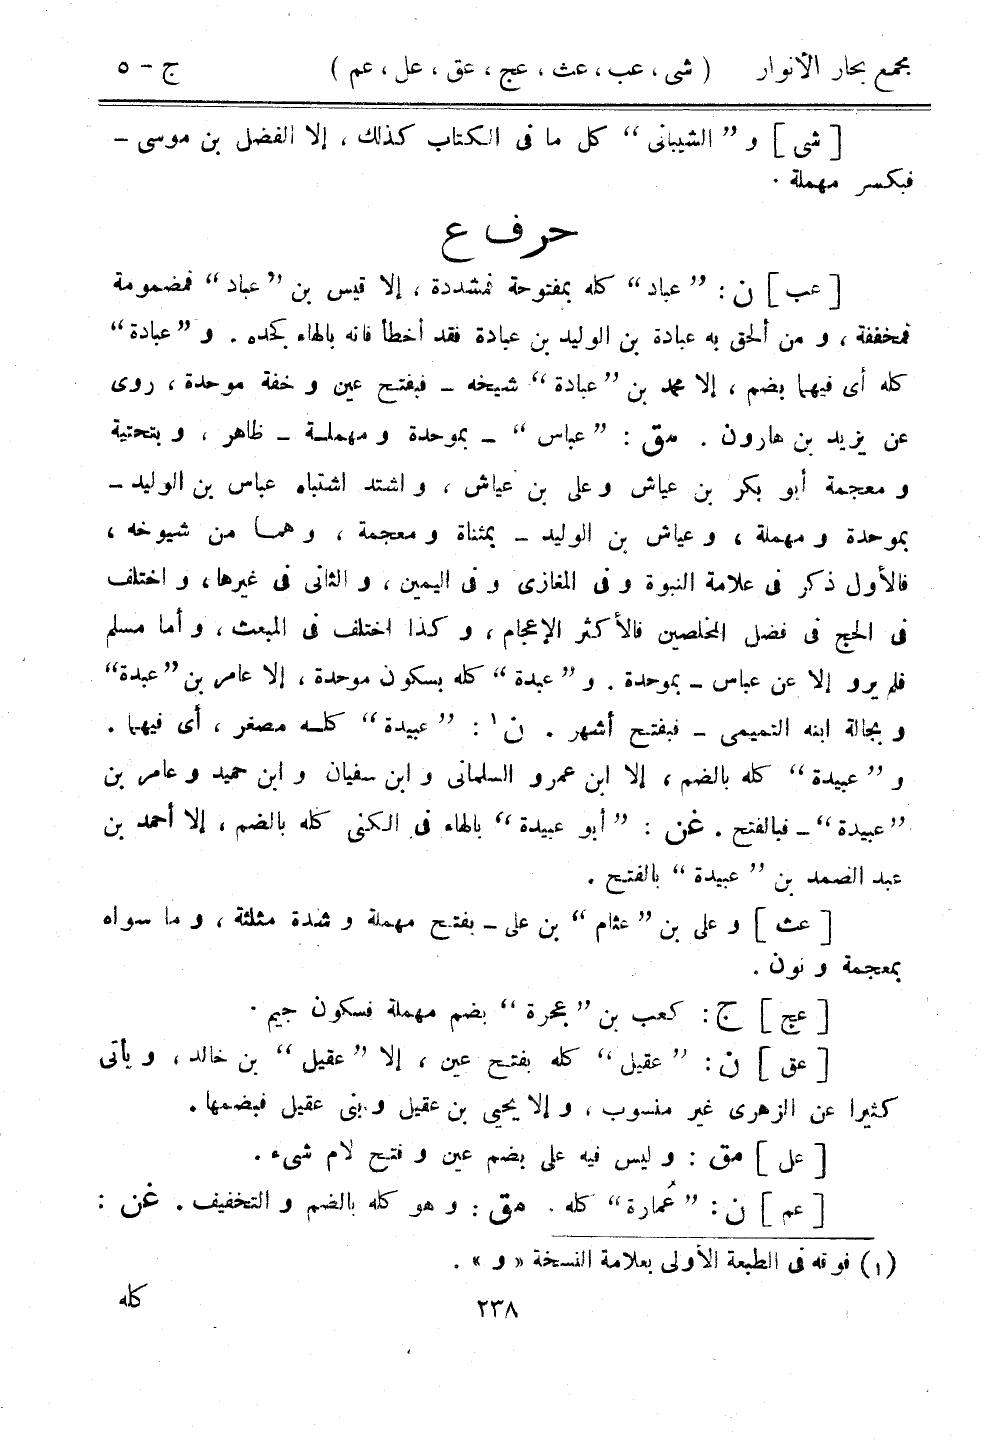 مجمع بحار الأنوار ( شى ، عب ، عث ، عج ، عق ، عل ، عم ) ج - ٥
[ شى ] و ”الشيبانى“ كل ما فى الكتاب كذلك ، إلا الفضل بن موسى –
فبكسر مهملة ·
حرف ع
[ عب ] ن : ”عباد“ كله بمفتوحة فمشددة ، إلا قيس بن ”عباد“ فمضمومة
فمخففة ، و من ألحق به عبادة بن الوليد بن عبادة فقد أخطأ فانه بالهاء كجده . و ”عبادة“
كله أى فيهما بضم ، إلا محمد بن ”عبادة“ شيخه – فبفتح عين و خفة موحدة ، روى
عن يزيد بن هارون . مق : ”عباس“ – بموحدة و مهملة – ظاهر ، و بتحتية
و معجمة أبو بكر بن عياش و على بن عياش ، و اشتد اشتباه عباس بن الوليد –
بموحدة و مهملة ، و عياش بن الوليد – بمثناة و معجمة ، و هما من شيوخه ،
فالأول ذكر فى علامة النبوة و فى المغازى و فى اليمين ، و الثانى فى غيرها ، و اختلف
فى الحج فى فضل المخلصين فالأكثر الإعجام ، و كذا اختلف فى المبعث ، و أما مسلم
فلم يرو إلا عن عباس – بموحدة . و ”عبدة“ كله بسكون موحدة ، إلا عامر بن ”عبدة“
و بجالة ابنه التميمى – فبفتح أشهر . ن١ : ”عبيدة“ كله مصغر ، أى فيهما .
و ”عبيدة“ كله بالضم ، إلا ابن عمرو السلمانى و ابن سفيان و ابن حميد و عامر بن
”عبيدة“ – فبالفتح . غن : ”أبو عبيدة“ بالهاء فى الكنى كله بالضم ، إلا أحمد بن
عبد الصمد بن ”عبيدة“ بالفتح .
[ عث ] و على بن ”عثام“ بن على – بفتح مهملة و شدة مثلثة ، و ما سواه
بمعجمة و نون .
[ عج ] ج : كعب بن ”عجرة“ بضم مهملة فسكون جيم ·
[ عق ] ن : ”عقيل“ كله بفتح عين ، إلا ”عقيل“ بن خالد ، و يأتى
كثيرا عن الزهرى غير منسوب ، و إلا يحيى بن عقيل و بنى عقيل فبضمها .
[ عل ] مق : و ليس فيه على بضم عين و فتح لام شىء .
[ عم ] ن : ”عُمارة“ كله . مق : و هو كله بالضم و التخفيف . غن :
(١) فوقه فى الطبعة الأولى بعلامة النسخة « و » .
٢٣٨ كله